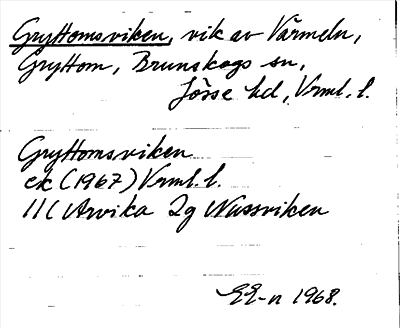 Gryttomsviken, vik av Värmeln,
Gryttom, Brunskogs sn,
Jösse hd, Vrml. l.
Gryttomsviken
ek (1967) Vrml. l.
11C Arvika 2g Nussviken
EE-n 1968.